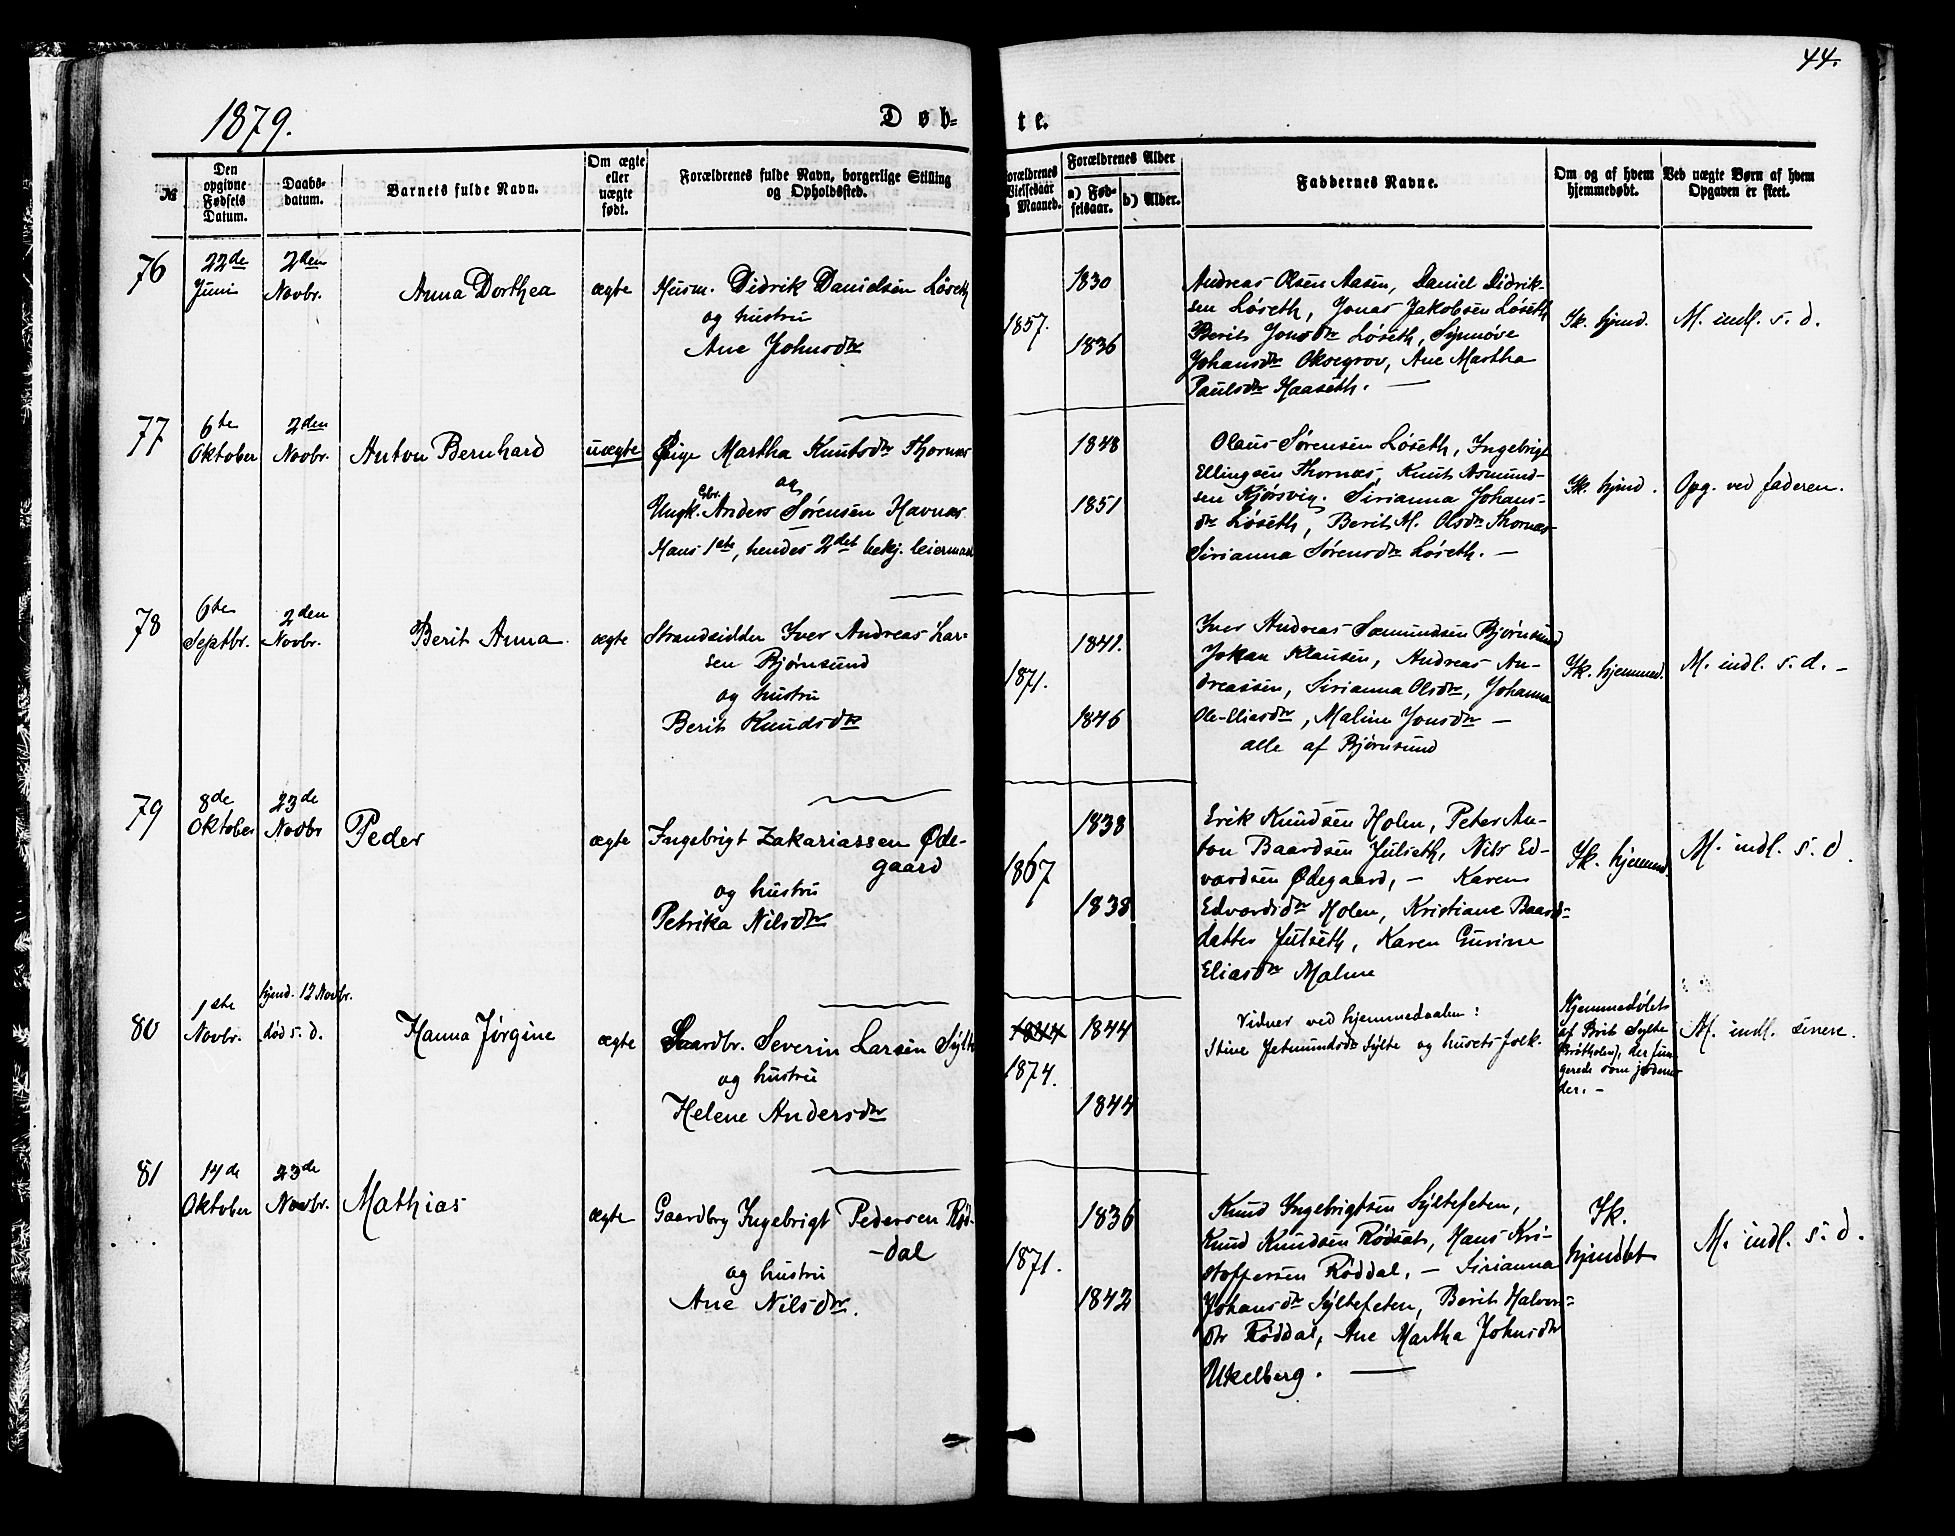 44.
1879.
Døb-
te.
№
Den opgivne Fødsels Datum.
Daabsdatum.
Barnets fulde Navn.
Om ægte eller uægte født.
Forældrenes fulde Navn, borgerlige Stilling og Opholdssted.
Forældrenes Vielsesaar Maaned.
Forældrenes Alder
a) Fødselsaar.
b) Alder.
Faddernes Navne.
Om og af hvem hjemmedøbt.
Ved uægte Børn af hvem Opgaven er skeet.
76
22de
Juni
2den
Novbr.
Anna Dorthea
ægte
Husm. Didrik Danielsen Löseth
og hustru
Ane Johnsdtr
1857.
1830
1836
Andreas Olsen Aasen, Daniel Didrik-
sen Löseth, Jonas Jakobsen Löseth
Berit Jonsdtr Löseth, Synnöve
Johansdtr Oksegrov, Ane Martha
Paulsdtr Haaseth. —
Ik. hjmd.
M. indl. s. d.
77
6te
Oktober
2den
Novbr.
Anton Bernhard
uægte
Pige Martha Knutsdtr Thornæs
og
Ungk. Gbr. Anders Sørensen Havnæs
Hans 1ste, hendes 2det bekj. leiermaal
1848
1851
Olaus Sørensen Løseth, Ingebrigt
Ellingsen Thornæs, Knut Asmund-
sen Kjørsvig. Sirianna Johans-
dtr Løseth, Berit M. Olsdtr Thornæs
Sirianna Sørensdtr Løseth. —
Ik. hjmd.
Opg. ved faderen.
78
6te
Septbr.
2den
Novbr.
Berit Anna
ægte
Strandsidder Iver Andreas Lar-
sen Bjørnsund
og hustru
Berit Knudsdtr
1871.
1841.
1846
Iver Andreas Sæmundsen Bjørnsund
Johan Klausen, Andreas An-
dreassen, Sirianna Olsdtr, Johanna
Ole-Eliasdtr, Maline Jonsdtr —
alle af Bjørnsund
Ik. hjemmed.
M. indl. s. d. -
79
8de
Oktober
23de
Novbr
Peder
ægte
Ingebrigt Zakariassen Øde-
gaard
og hustru
Petrika Nilsdtr
1867
1838
1838
Erik Knudsen Holen, Peter An-
ton Baardsen Julseth, Nils Ed-
vardsen Ødegaard, — Karen
Edvardsdtr Holen, Kristiane Baard-
datter Julseth, Karen Gurine
Eliasdtr Malme
Ik. hjemmd.
M. indl. s. d.
80
1ste
Novbr.
hjmd. 12 Novbr.
død s. d.
Hanna Jørgine
ægte
Gaardbr. Severin Larsen Sylte
og hustru
Helene Andersdtr
1844
1874.
1844
1844
Vidner ved hjemmedaaben:
Stine Jetmundsdtr Sylte og husets folk.
Hjemmedøbt
af Brit Sylte
(Brøtholen), der fun-
gerede som jordemo-
der. -
M. indl. senere.
81
14de
Oktober
23de
Novbr.
Mathias
ægte
Gaardbrg Ingebrigt Pedersen Rød-
-dal
og hustru
Ane Nilsdtr.
1871.
1836
1842
Knud Ingebrigtsen Syltefeten,
Knud Knudsen Rødsæt, Hans Kri-
stoffersen Røddal, — Sirianna
Johansdtr Syltefeten, Berit Halvors-
dtr Røddal, Ane Martha Johnsdtr
Ukelberg. —
Ik.
hjmdbt
M. indl. s. d.